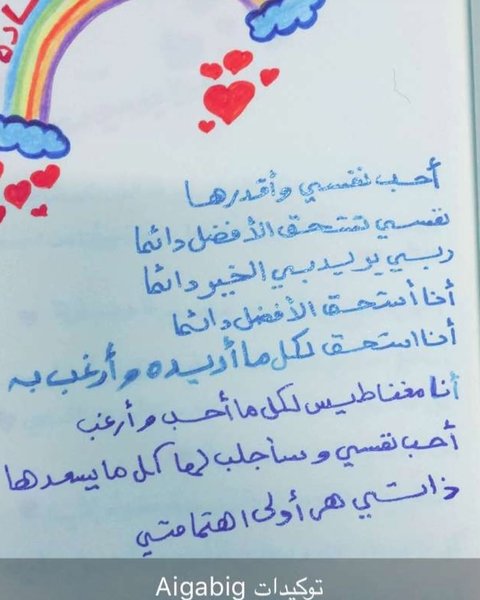 أحب نفسي وأقدرها
نفسي تستحق الأفضل دائما
ربي يريد بي الخير دائما
أنا أستحق الأفضل دائما
أنا استحق لكل ما أريده وأرغب به
أنا مغناطيس لكل ما أحب وأرغب
أحب نفسي وسأجلب لها كل ما يسعدها
ذاتي هي أولى اهتماماتي
توكيدات Aigabig